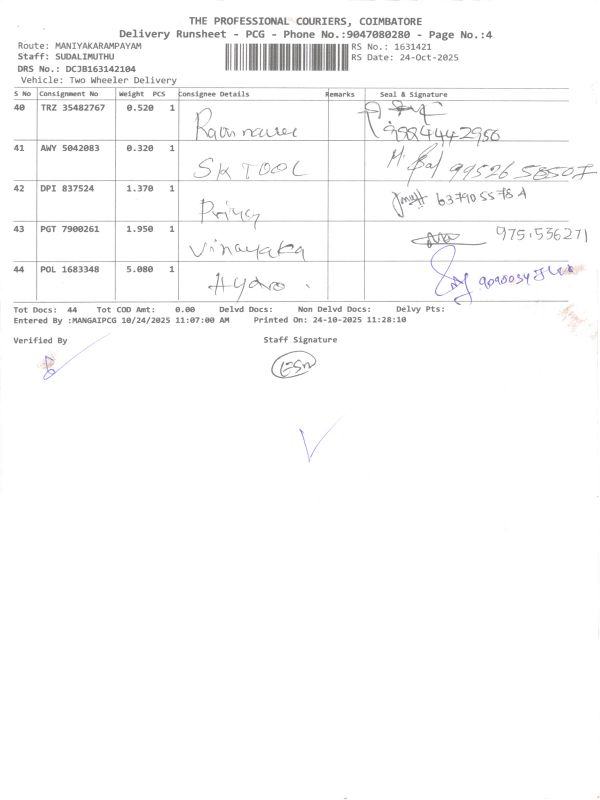 THE PROFESSIONAL COURIERS, COIMBATORE
Delivery Runsheet - PCG - Phone No.:9047080280 - Page No.:4
Route: MANIYAKARAMPAYAM RS No.: 1631421
Staff: SUDALIMUTHU RS Date: 24-Oct-2025
DRS No.: DCJB163142104
Vehicle: Two Wheeler Delivery
S No Consignment No Weight PCS Consignee Details Remarks Seal & Signature
40 TRZ 35482767 0.520 1
41 AWY 5042083 0.320 1
SK TOOL
42 DPI 837524 1.370 1
Priya
43 PGT 7900261 1.950 1
Vinayaka
44 POL 1683348 5.080 1
Hydro .
Tot Docs: 44 Tot COD Amt: 0.00 Delvd Docs: Non Delvd Docs: Delvy Pts:
Entered By :MANGAIPCG 10/24/2025 11:07:00 AM Printed On: 24-10-2025 11:28:10
Verified By Staff Signature